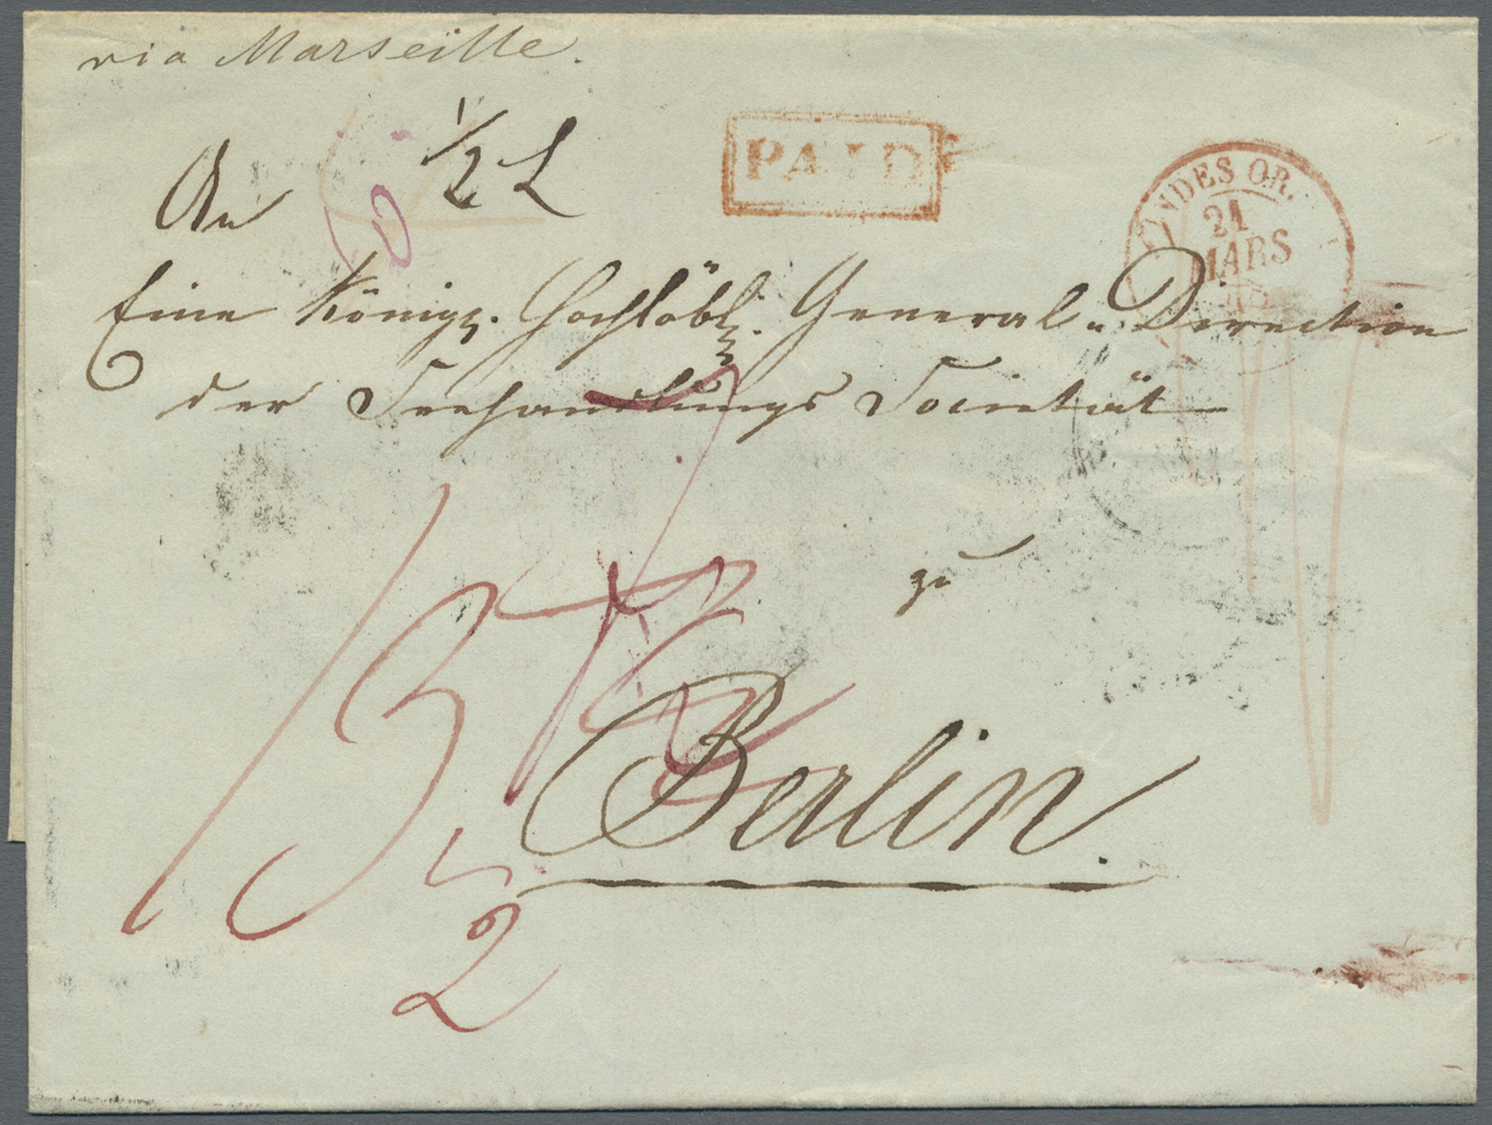 via Marseille.
1/2 L
PAID
INDES OR.
21
MARS
An
Eine Königl. Hochlöbl. General-Direction
der Seehandlungs Societät
zu
Berlin.